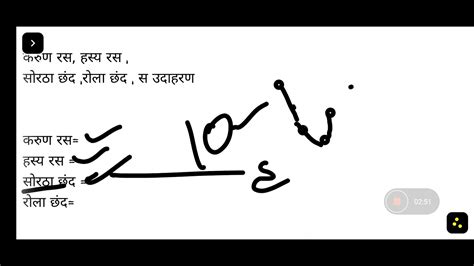 करुण रस, हस्य रस ,
सोरठा छंद ,रोला छंद , स उदाहरण
करुण रस=
हस्य रस =
सोरठा छंद =
रोला छंद=
10
02:51